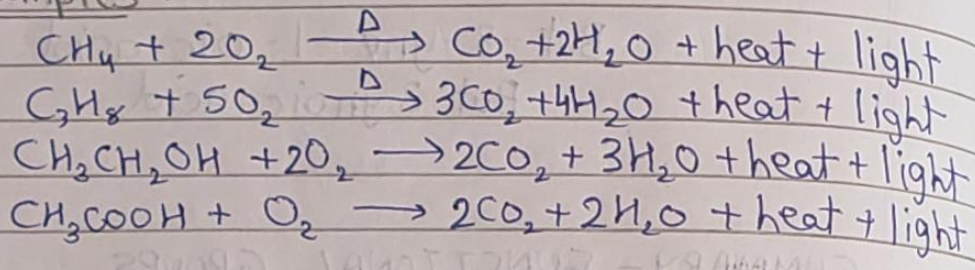 CH₄ + 2O₂ —Δ→ CO₂ + 2H₂O + heat + light
C₃H₈ + 5O₂ —Δ→ 3CO₂ + 4H₂O + heat + light
CH₃CH₂OH + 2O₂ → 2CO₂ + 3H₂O + heat + light
CH₃COOH + O₂ → 2CO₂ + 2H₂O + heat + light